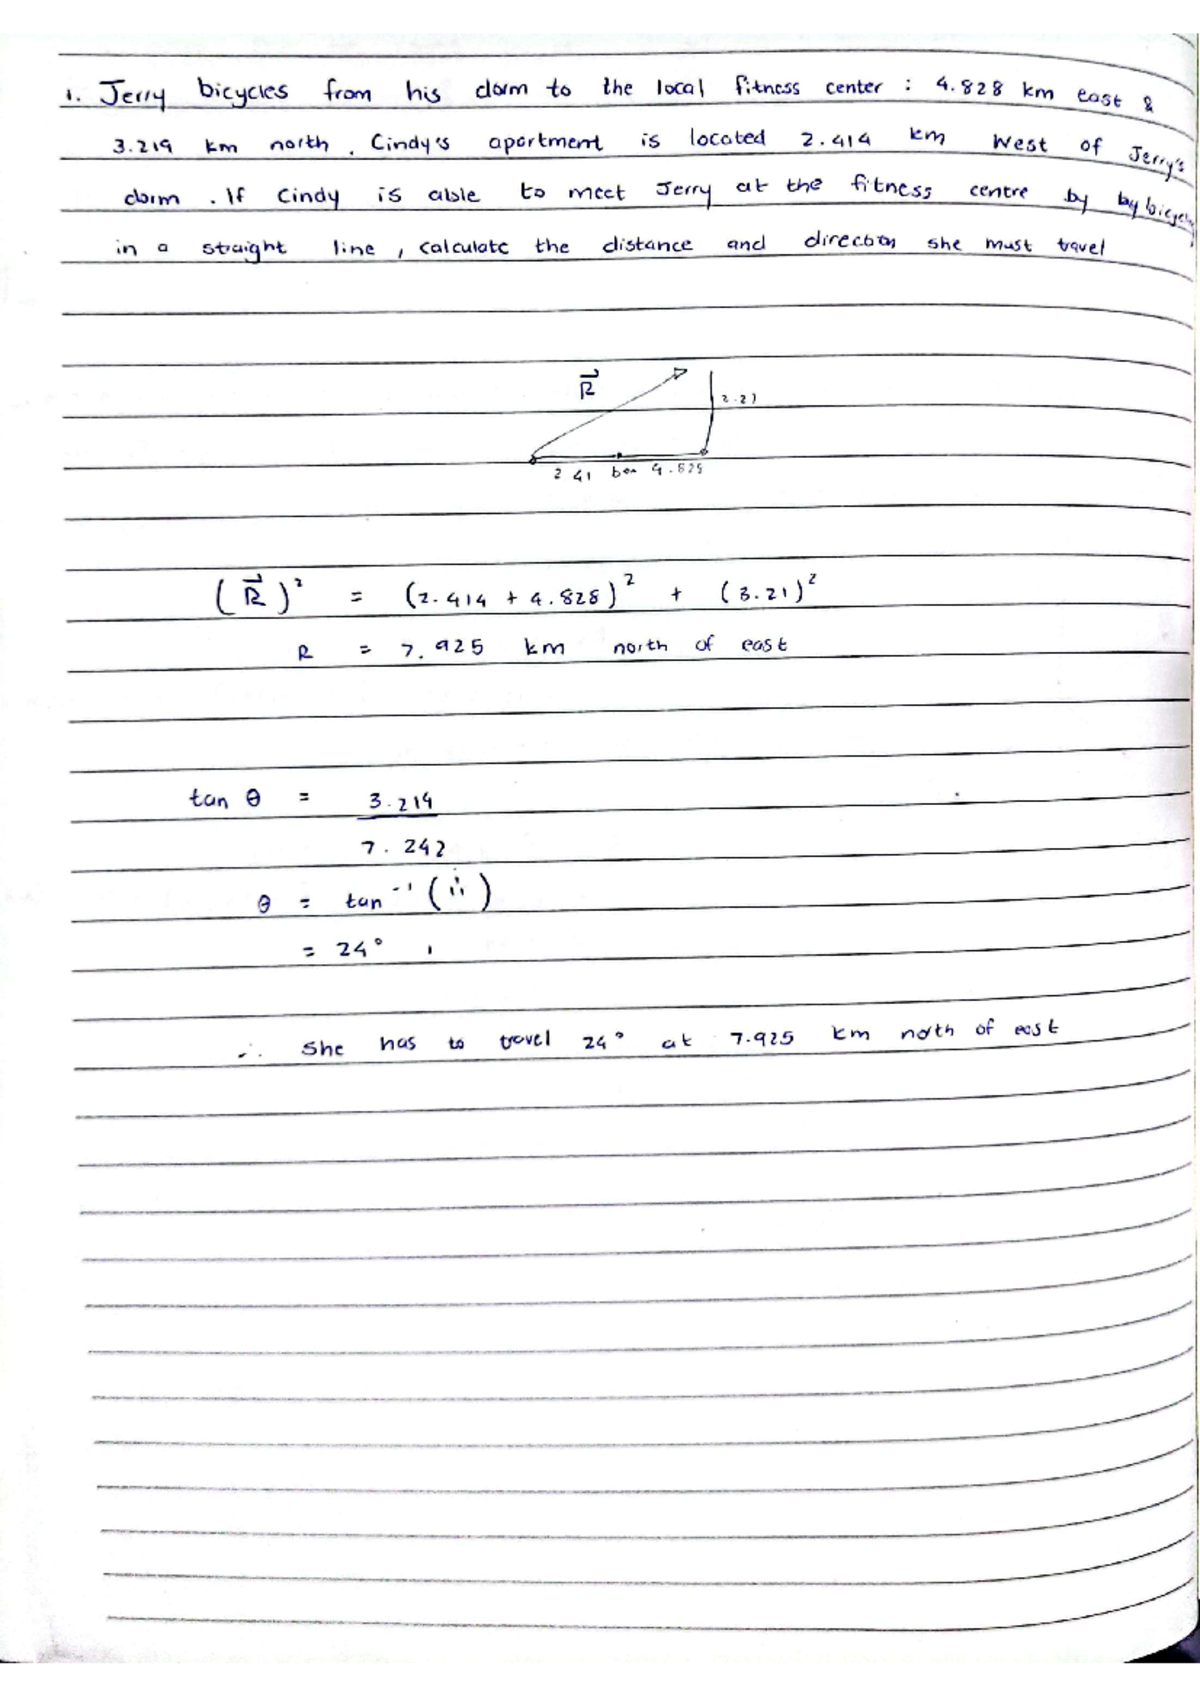 1. Jerry bicycles from his dorm to the local fitness center : 4.828 km east &
3.219 km north . Cindy's apartment is located 2.414 km West of Jerry's
dorm . If Cindy is able to meet Jerry at the fitness centre by by bicycle
in a straight line , calculate the distance and direction she must travel
R
2.41 4.828
(R)² = (2.414 + 4.828)² + (3.21)²
R = 7.925 km north of east
tan θ = 3.214
7.242
θ = tan⁻¹ ( )
= 24°
∴ She has to travel 24° at 7.925 km north of east